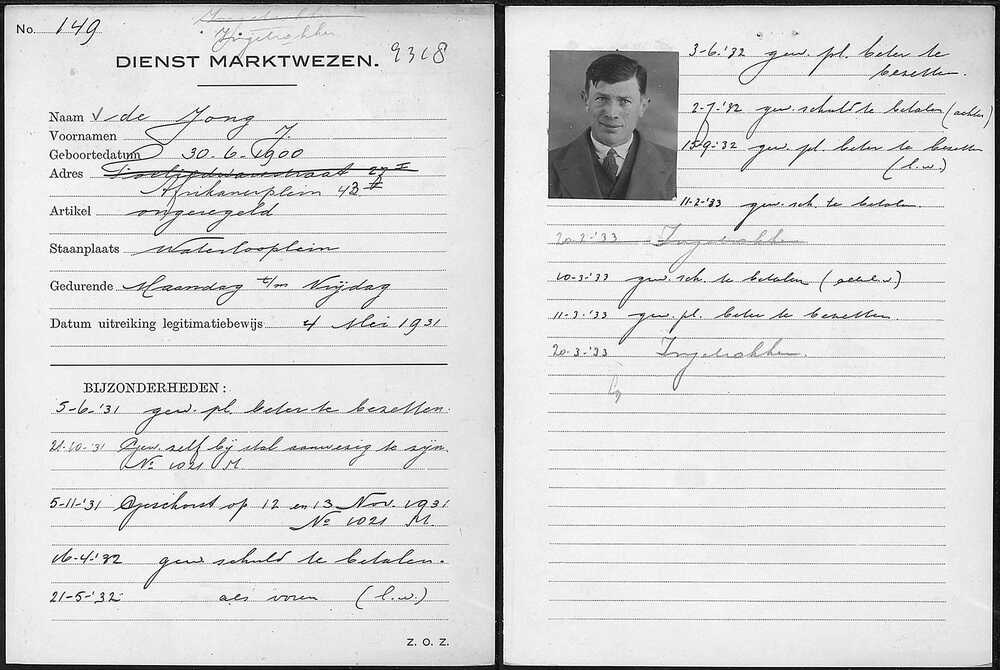 No. 149
Ingetrokken
Ingetrokken
DIENST MARKTWEZEN. 9318
Naam de Jong
Voornamen J.
Geboortedatum 30-6-1900
Adres 27 I
Afrikanerplein 43 II
Artikel ongeregeld
Staanplaats Waterlooplein
Gedurende Maandag t/m Vrijdag
Datum uitreiking legitimatiebewijs 4 Mei 1931
BIJZONDERHEDEN:
5-6-'31 gew. pl. beter te bezetten.
21-10-'31 Gew. zelf bij stal aanwezig te zijn.
No 1021 M
5-11-'31 Geschorst op 12 en 13 Nov. 1931
No 1021 M.
16-4-'32 gew. schuld te betalen.
21-5-'32 als voren (l.w.)
Z. O. Z.
3-6-'32 gew. pl. beter te
bezetten.
2-7-'32 gew. schuld te betalen (achter)
13-9-'32 gew. pl. beter te bezetten
(l.w.)
11-2-'33 gew. sch. te betalen.
20-2-'33 Ingetrokken
10-3-'33 gew. sch. te betalen
11-3-'33 gew. pl. beter te bezetten.
20-3-'33 Ingetrokken.